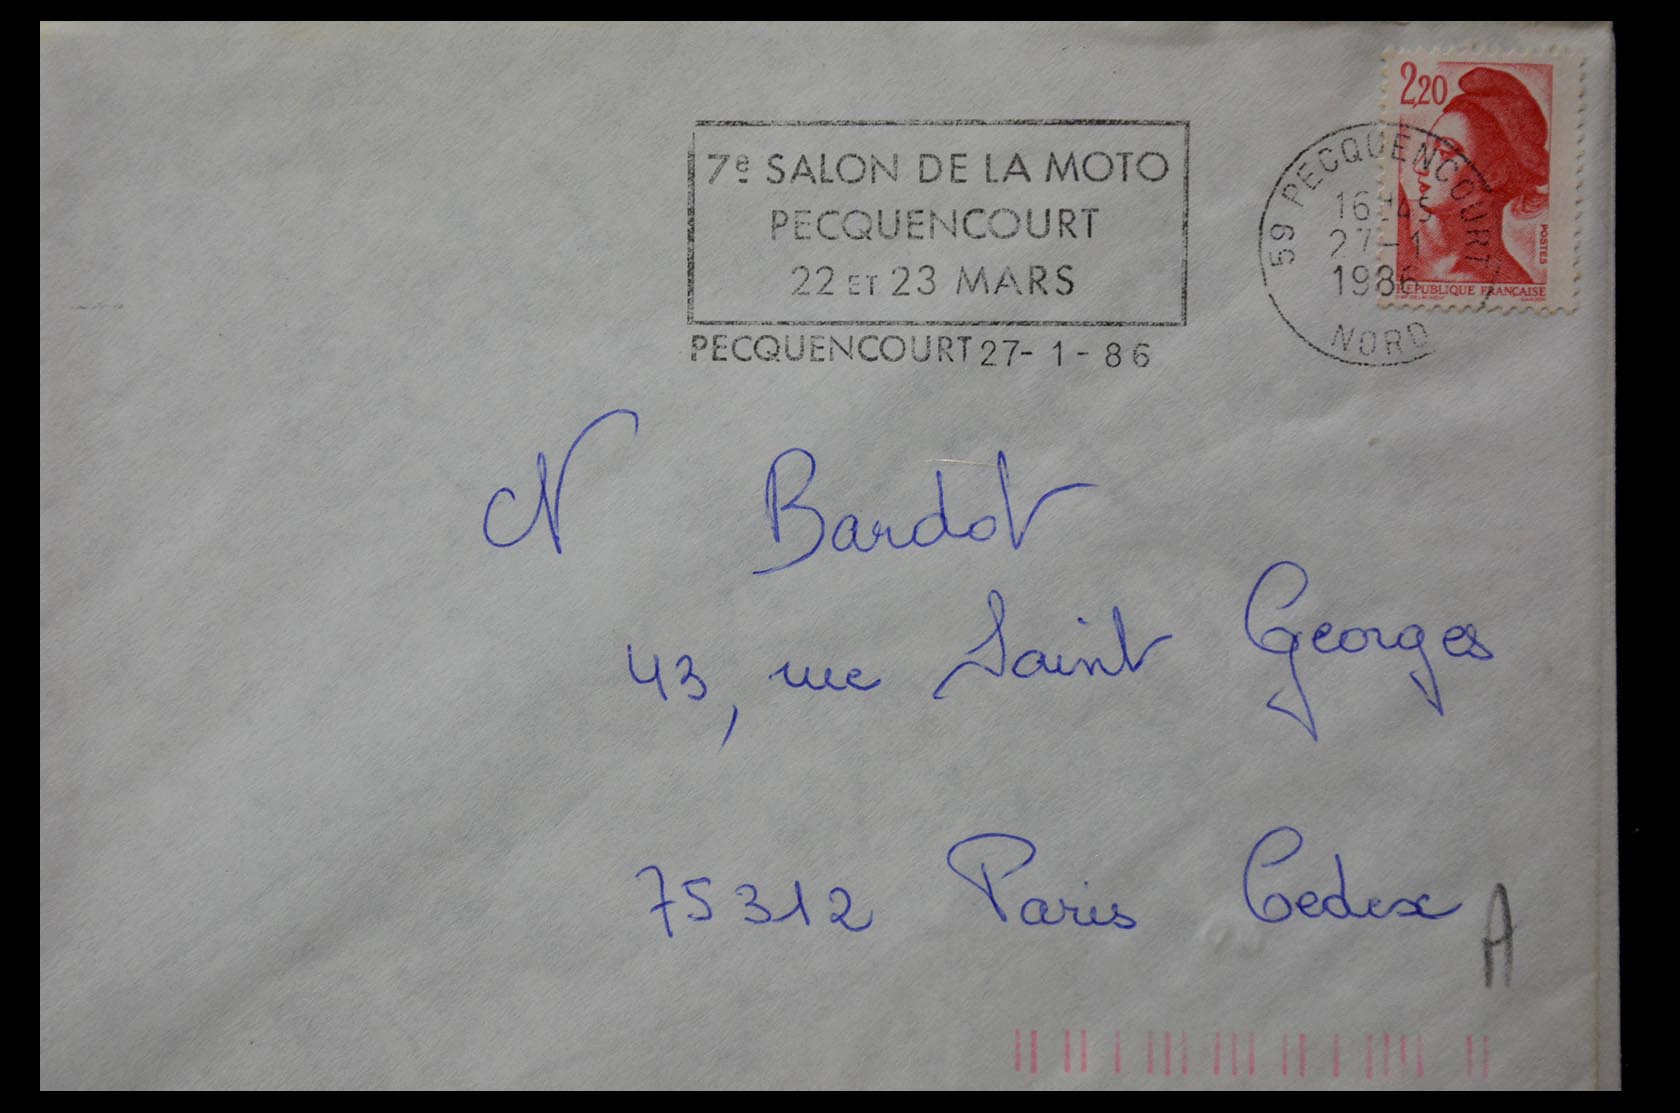 7e SALON DE LA MOTO
PECQUENCOURT
22 ET 23 MARS
PECQUENCOURT 27-1-86
59 PECQUENCOURT
16H45
27-1
1986
NORD
2,20
POSTES
REPUBLIQUE FRANÇAISE
N Bardot
43, rue Saint Georges
75312 Paris Cedex
A